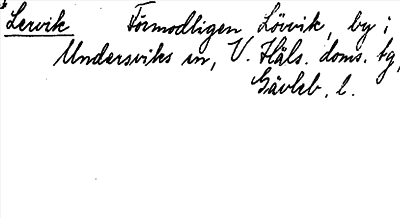 Lervik Förmodligen Lövvik, by i
Undersviks sn, V. Häls. doms. tg,
Gävleb. l.